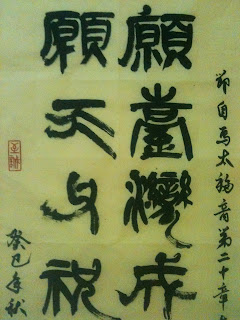 節自馬太福音第二十章
願臺灣成
願天父祝
癸巳年秋